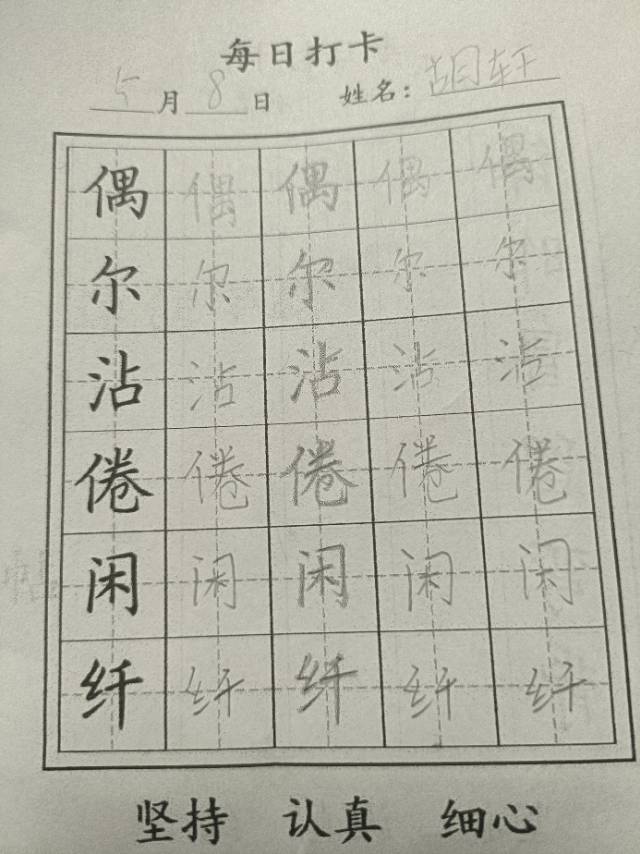 每日打卡
5月8日 姓名：胡轩
偶 偶 偶 偶 偶
尔 尔 尔 尔 尔
沾 沾 沾 沾 沾
倦 倦 倦 倦 倦
闲 闲 闲 闲 闲
纤 纤 纤 纤 纤
坚持 认真 细心